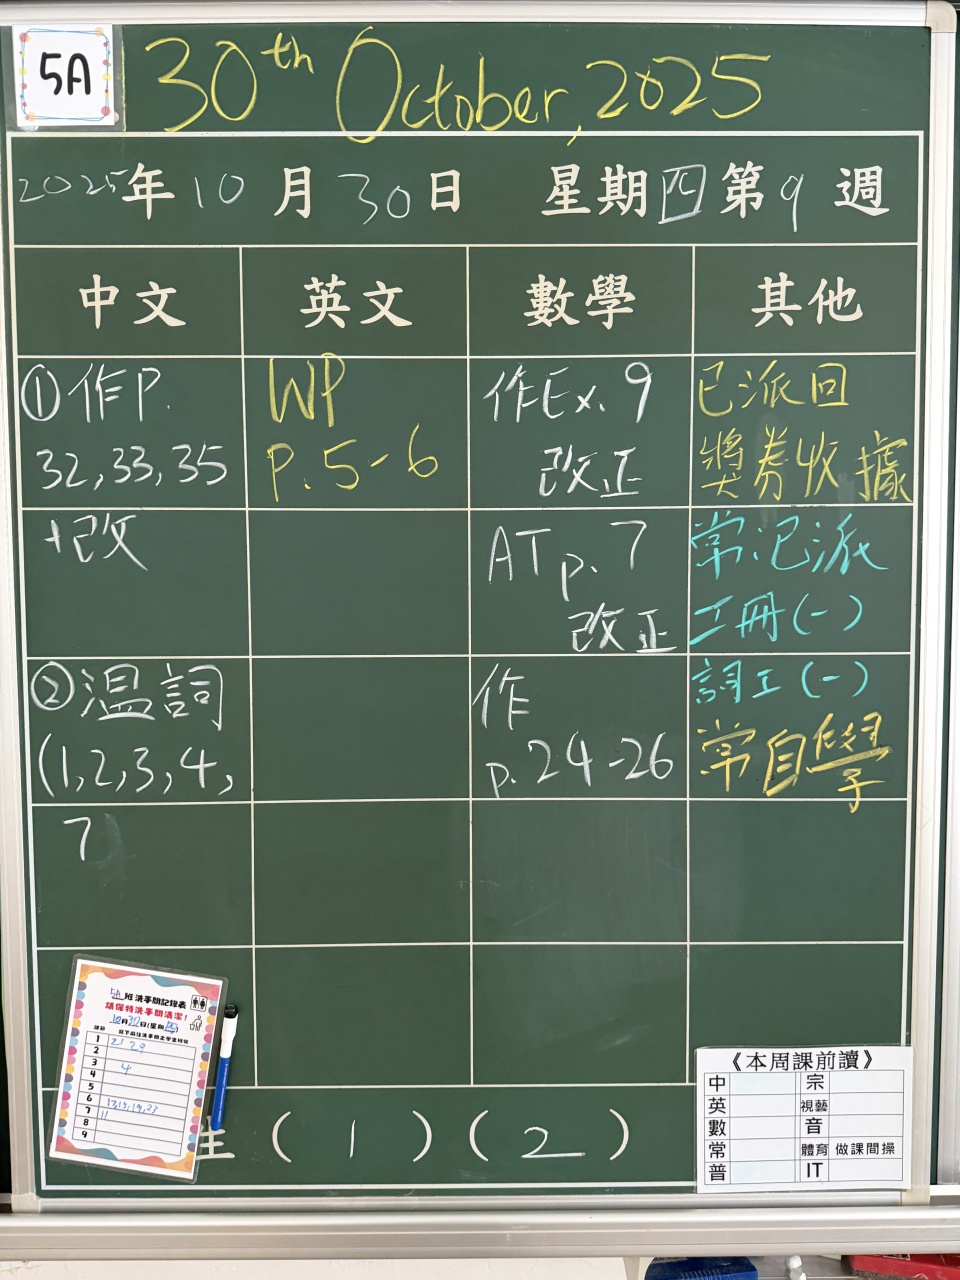 5A
30th October, 2025
2025年10月30日 星期四第9週
中文 英文 數學 其他
①作P.
32,33,35
+改
②溫詞
(1,2,3,4,
7
WP
P.5-6
作Ex.9
改正
AT p.7
改正
作
p.24-26
已派回
獎券收據
常:已派
工冊(一)
詞工(一)
常自學
5A班洗手間記錄表
請保持洗手間清潔!
10月30日(星期四)
1 21 29
2
3 4
4
5
6 17,15,19,23
7 11
8
9
生(1)(2)
《本周課前讀》
中 宗
英 視藝
數 音
常 體育 做課間操
普 IT